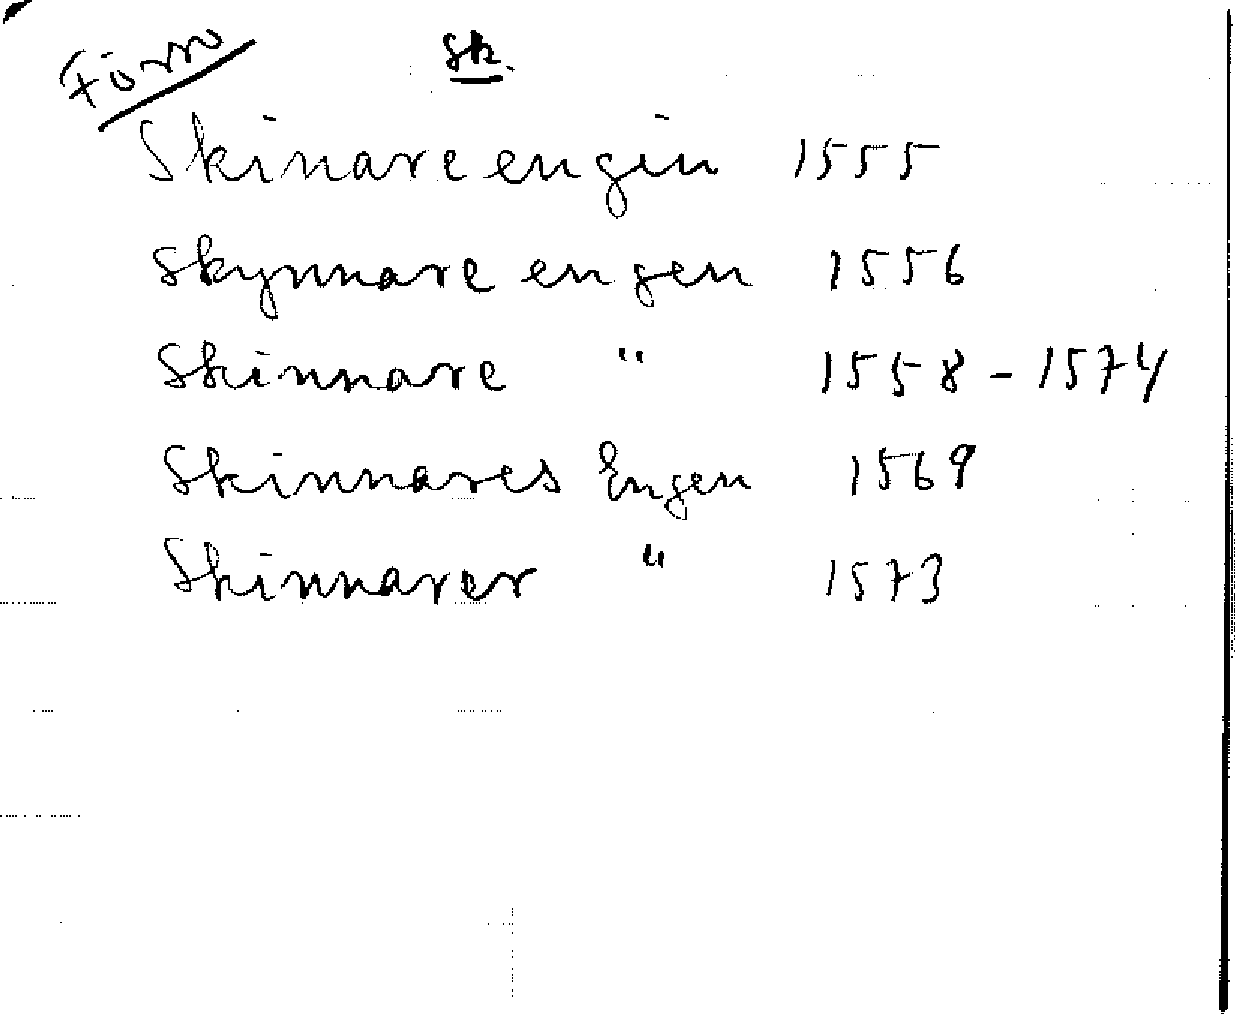 Förro Sk.
Skinareengin 1555
Skynnare engen 1556
Skinnare " 1558-1574
Skinnares Engen 1569
Skinnarer " 1573